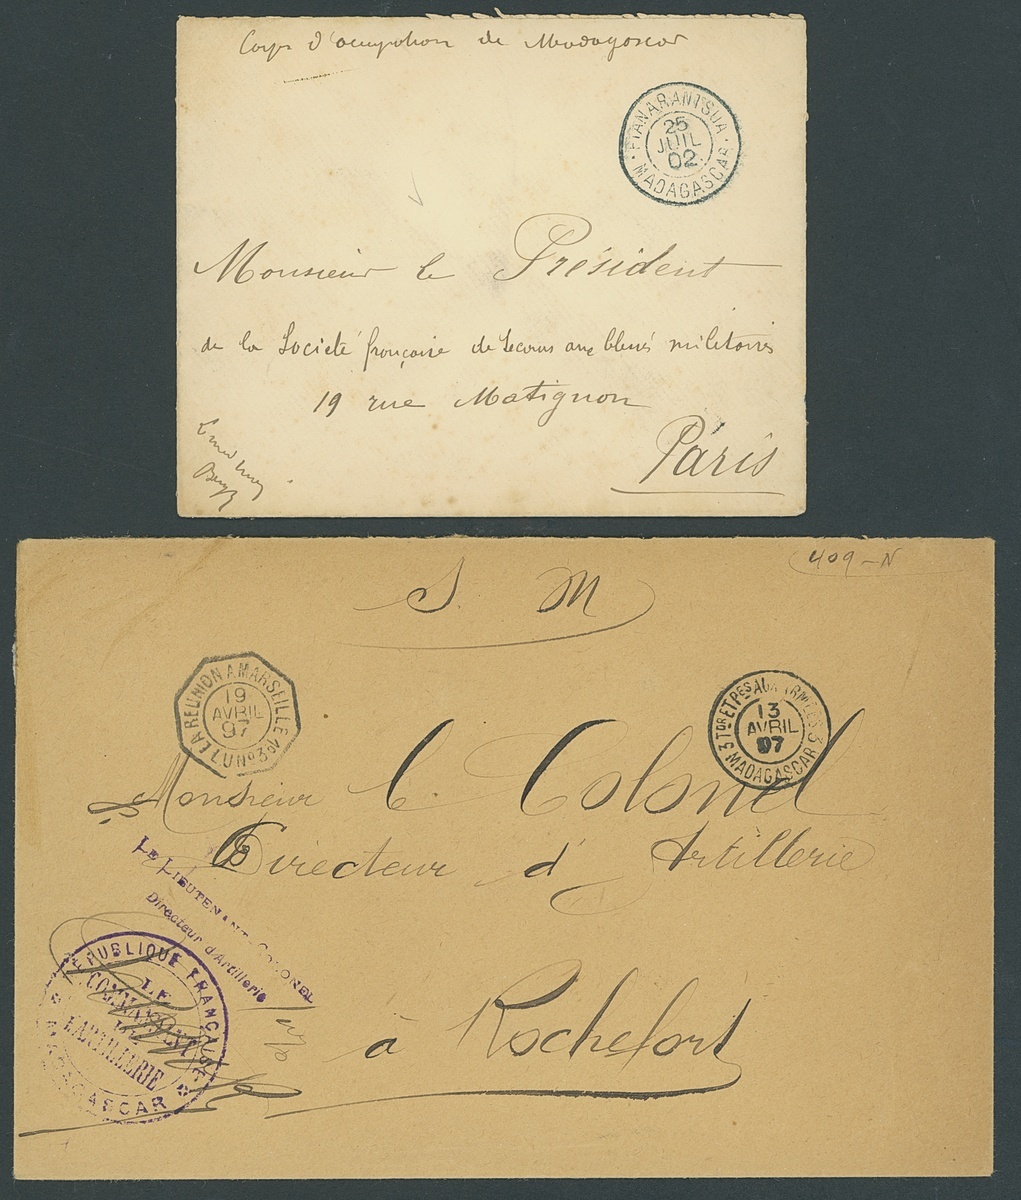 Corps d'occupation de Madagascar
FIANARANTSOA
25
JUIL
02
MADAGASCAR
Monsieur le Président
de la Société française de Secours aux blessés militaires
19 rue Matignon
Paris
409-N
S. M
REUNION A MARSEILLE
19
AVRIL
97
L.U No3
TOR ET PES AUX ARMEES
13
AVRIL
97
3 MADAGASCAR 3
Monsieur le Colonel
Directeur d'Artillerie
à Rochefort
LE LIEUTENANT-COLONEL
Directeur d'Artillerie
REPUBLIQUE FRANÇAISE
LE
COMMANDANT
L'ARTILLERIE
MADAGASCAR